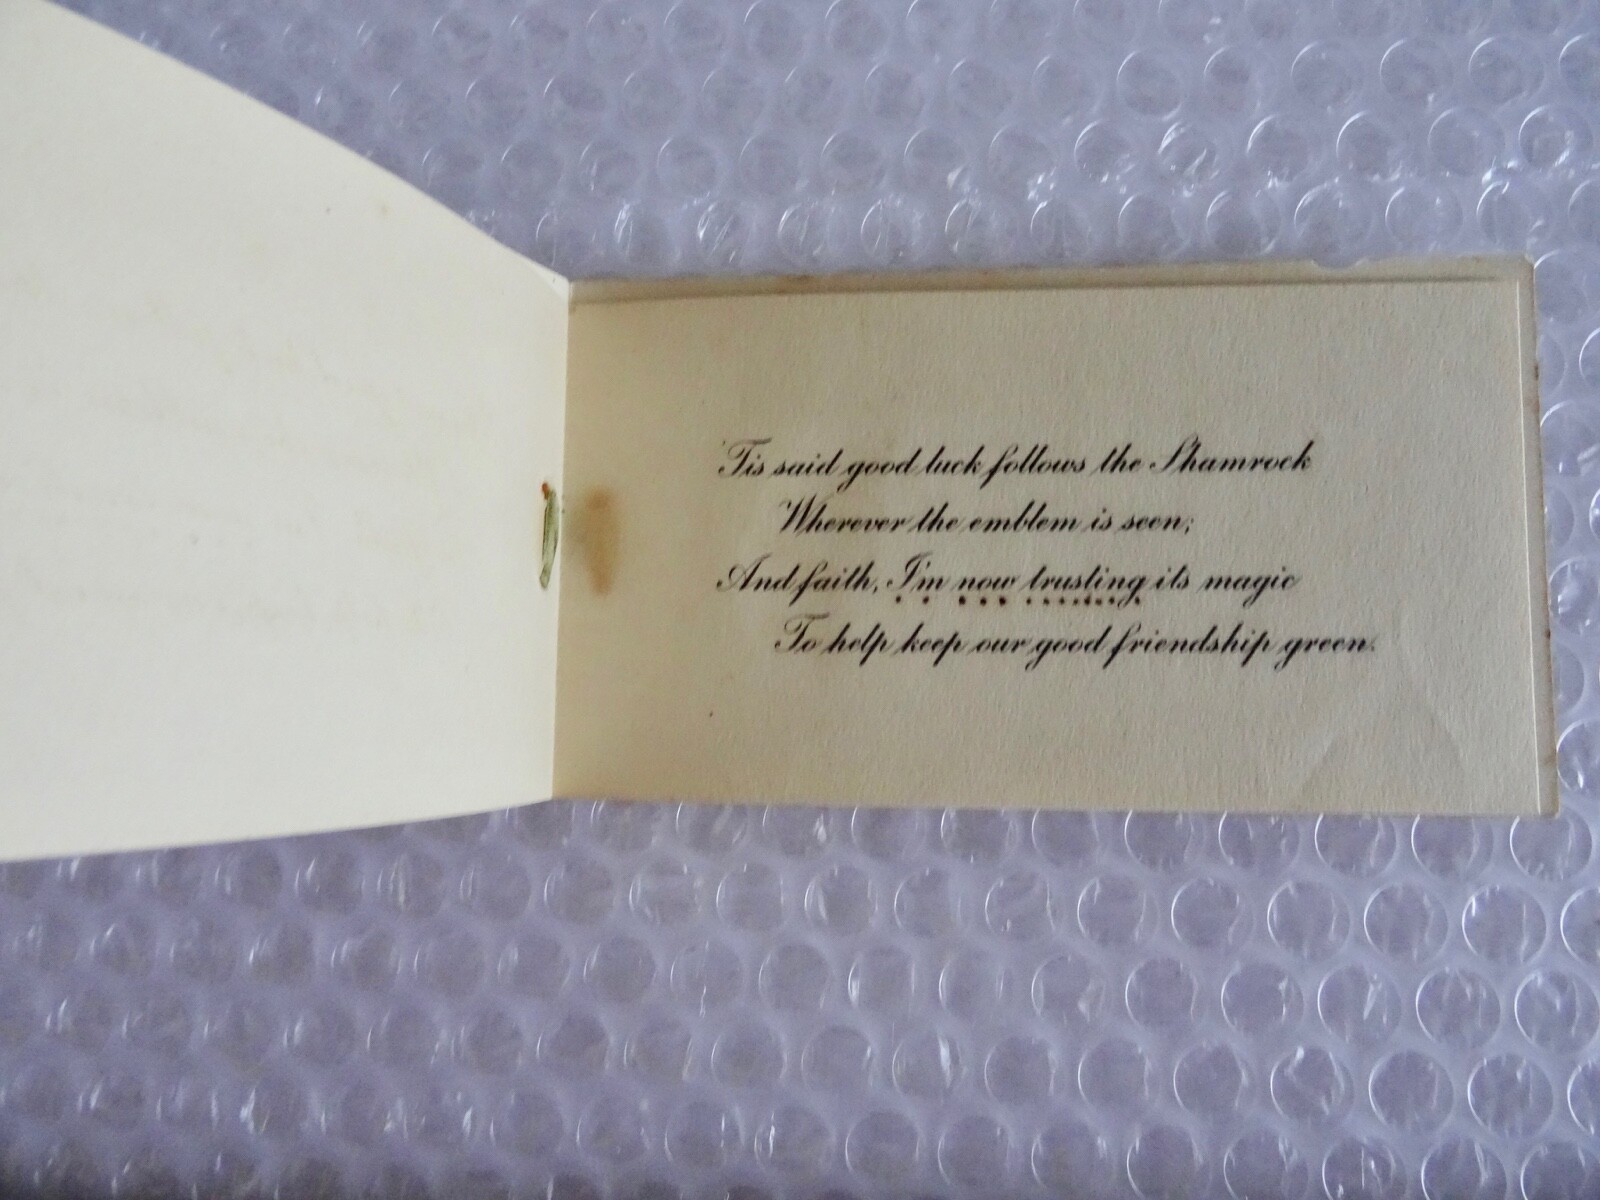 'Tis said good luck follows the Shamrock
Wherever the emblem is seen;
And faith, I'm now trusting its magic
To help keep our good friendship green.